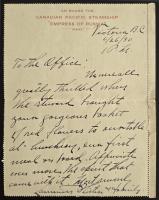 ON BOARD THE
CANADIAN PACIFIC STEAMSHIP
EMPRESS OF RUSSIA
Victoria B.C.
5/26/30
To the Office:
We were all
greatly thrilled when
the steward brought
your gorgeous basket
of red flowers to our table
at luncheon, our first
meal on board. Appreciate
even more the spirit that
came with it.
& family